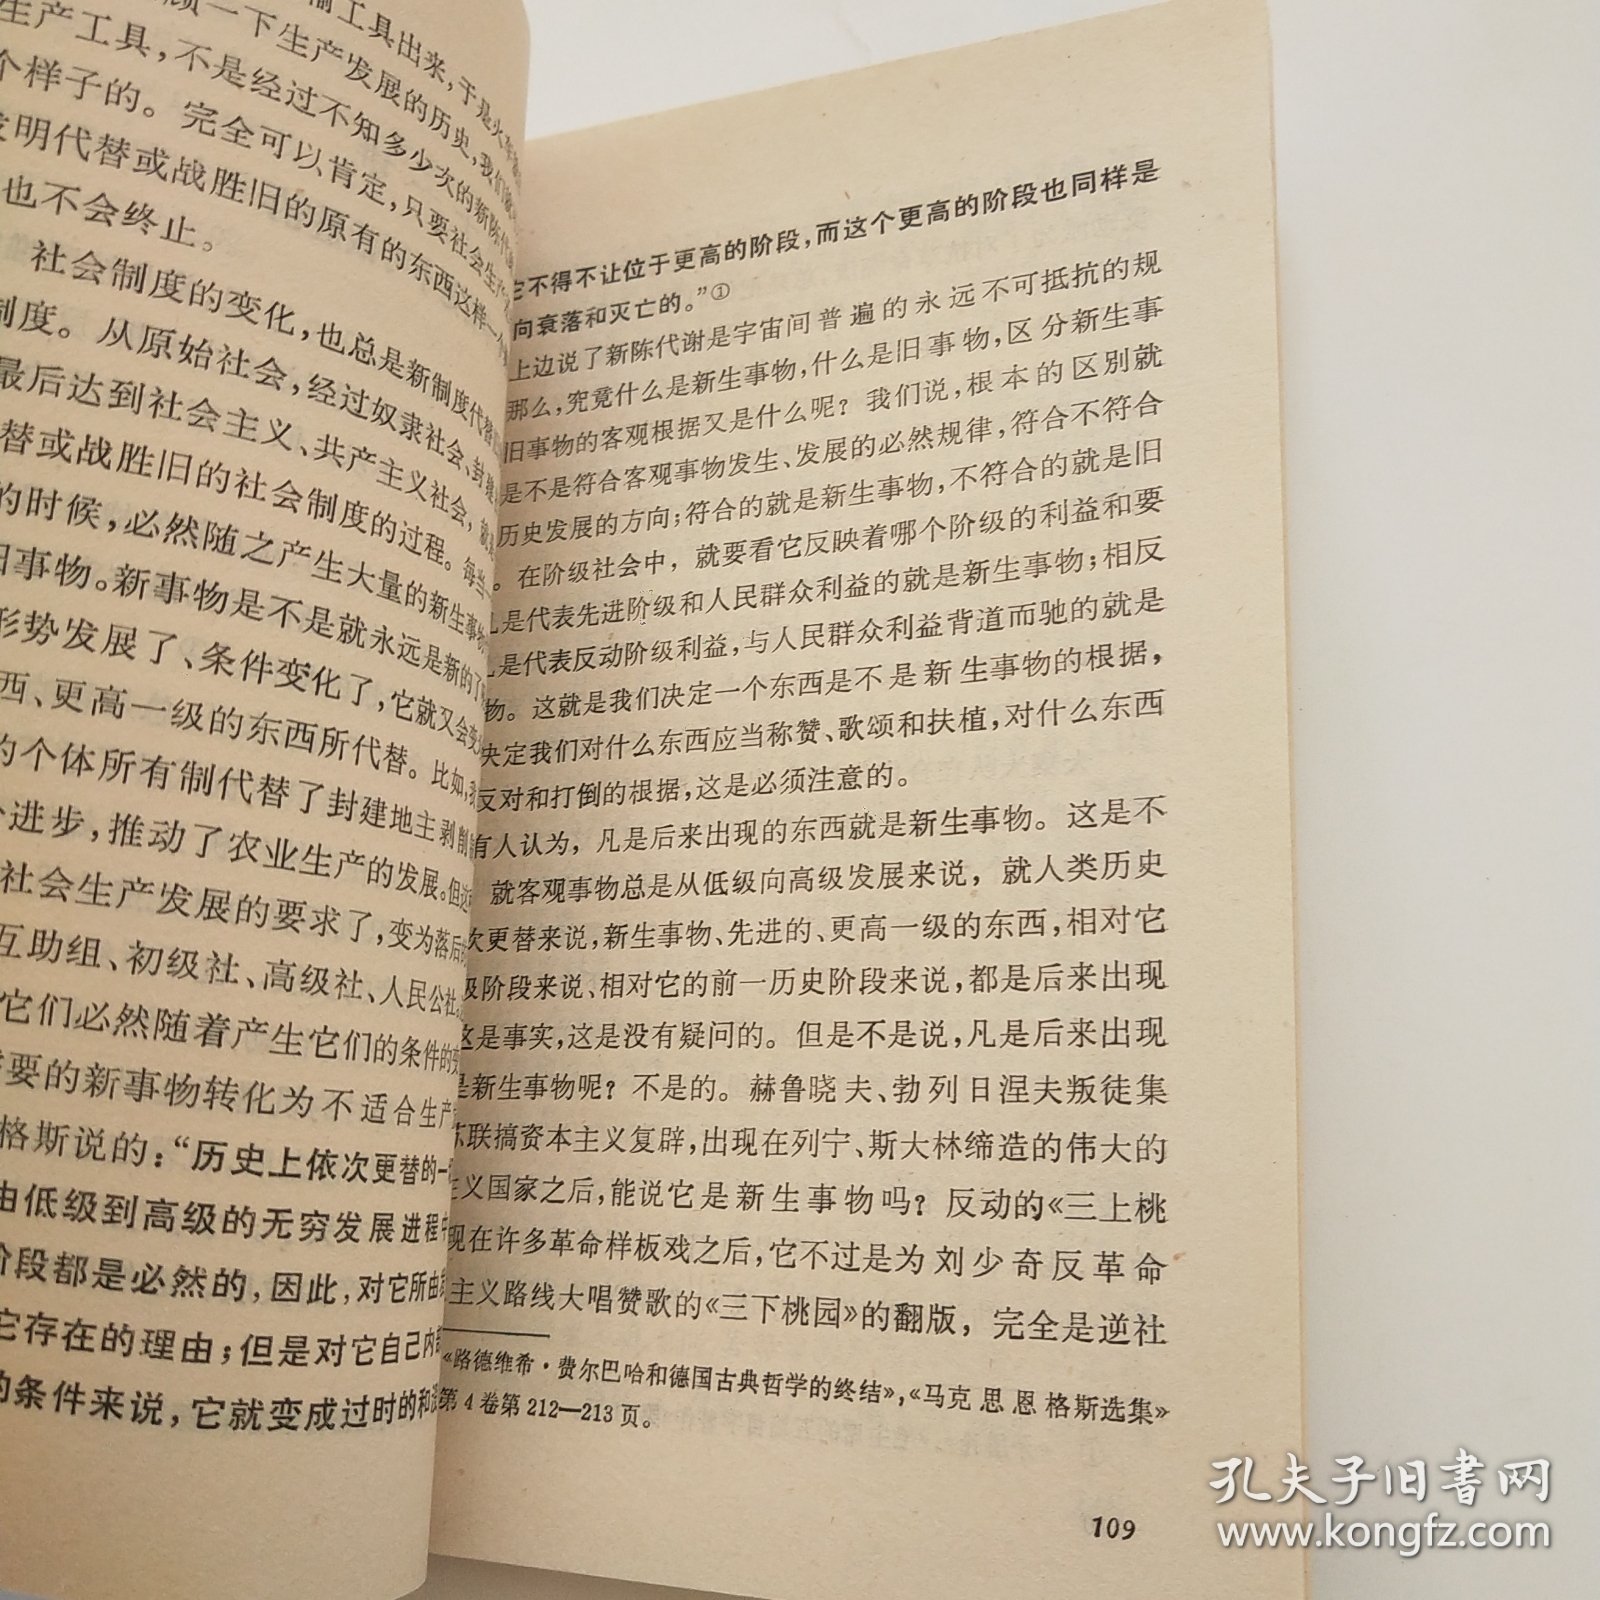 输工具出来,于是火车
顾一下生产发展的历史,我们
生产工具,不是经过不知多少次的新陈代
个样子的。完全可以肯定,只要社会生产
发明代替或战胜旧的原有的东西这样一个
也不会终止。
社会制度的变化,也总是新制度代替
制度。从原始社会,经过奴隶社会、封建
最后达到社会主义、共产主义社会,就是
替或战胜旧的社会制度的过程。每当
的时候,必然随之产生大量的新生事物
旧事物。新事物是不是就永远是新的了
形势发展了、条件变化了,它就又会变
西、更高一级的东西所代替。比如,我
的个体所有制代替了封建地主剥削
个进步,推动了农业生产的发展。但这
社会生产发展的要求了,变为落后
互助组、初级社、高级社、人民公社
它们必然随着产生它们的条件的变
需要的新事物转化为不适合生产
格斯说的:“历史上依次更替的一
由低级到高级的无穷发展进程中
阶段都是必然的,因此,对它所由
它存在的理由;但是对它自己内部
的条件来说,它就变成过时的和没
它不得不让位于更高的阶段,而这个更高的阶段也同样是
向衰落和灭亡的。”①
上边说了新陈代谢是宇宙间普遍的永远不可抵抗的规
那么,究竟什么是新生事物,什么是旧事物,区分新生事
旧事物的客观根据又是什么呢?我们说,根本的区别就
是不是符合客观事物发生、发展的必然规律,符合不符合
历史发展的方向;符合的就是新生事物,不符合的就是旧
。在阶级社会中,就要看它反映着哪个阶级的利益和要
凡是代表先进阶级和人民群众利益的就是新生事物;相反
凡是代表反动阶级利益,与人民群众利益背道而驰的就是
物。这就是我们决定一个东西是不是新生事物的根据,
决定我们对什么东西应当称赞、歌颂和扶植,对什么东西
反对和打倒的根据,这是必须注意的。
有人认为,凡是后来出现的东西就是新生事物。这是不
就客观事物总是从低级向高级发展来说,就人类历史
次更替来说,新生事物、先进的、更高一级的东西,相对它
级阶段来说、相对它的前一历史阶段来说,都是后来出现
这是事实,这是没有疑问的。但是不是说,凡是后来出现
是新生事物呢?不是的。赫鲁晓夫、勃列日涅夫叛徒集
苏联搞资本主义复辟,出现在列宁、斯大林缔造的伟大的
主义国家之后,能说它是新生事物吗?反动的《三上桃
现在许多革命样板戏之后,它不过是为刘少奇反革命
主义路线大唱赞歌的《三下桃园》的翻版,完全是逆社
《路德维希·费尔巴哈和德国古典哲学的终结》,《马克思恩格斯选集》
第4卷第212—213页。
109
孔夫子旧书网
www.kongfz.com